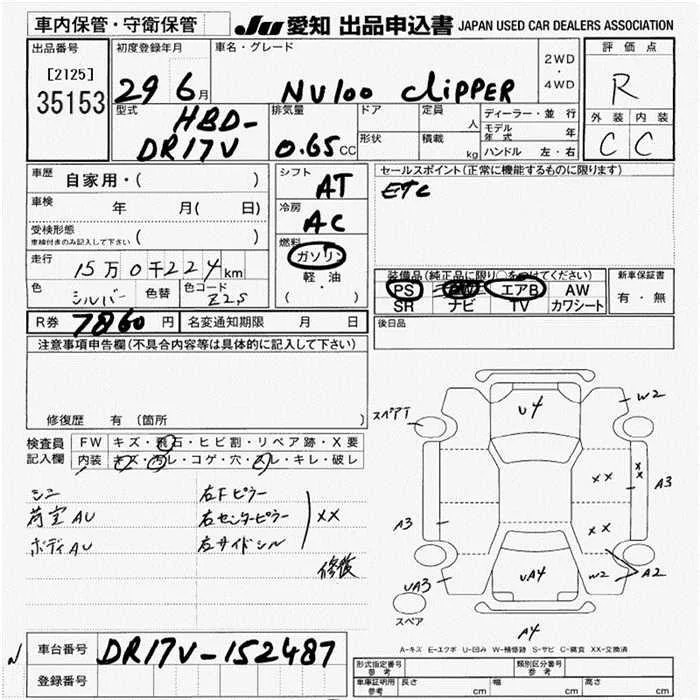 車内保管・守衛保管
JU 愛知 出品申込書 JAPAN USED CAR DEALERS ASSOCIATION
出品番号
[2125]
35153
初度登録年月
29 6月
車名・グレード
NV100 CLIPPER
2WD
・
4WD
評価点
R
外装 内装
C C
型式
HBD-
DR17V
排気量
0.65 CC
ドア
形状
定員
人
積載
kg
ディーラー・並行
モデル年式 年
ハンドル 左・右
車歴
自家用・( )
車検
年 月( 日)
受検形態
車検付きのみ記入して下さい ( )
走行
15万0千224km
色
シルバー
色替
色コード
Z2S
シフト
AT
冷房
AC
燃料
ガソリン
軽・油
( )
セールスポイント(正常に機能するものに限ります)
ETC
装備品(純正品に限り○をつけてください)
PS PW エアB AW
SR ナビ TV カワシート
新車保証書
有・無
後日品
R券 7860円
名変通知期限 月 日
注意事項申告欄(不具合内容等は具体的に記入して下さい)
修復歴 有 (箇所 )
検査員
記入欄
FW キズ・飛石・ヒビ割・リペア跡・X要
内装 キズ・汚レ・コゲ・穴・スレ・キレ・破レ
シミ
荷室AU
ボディAU
右Fピラー
右センターピラー
右サイドシル
XX
修復
スペアT
U4
W2
XX
XX
A3
A3
XX
UA3
UA4
W2
A2
スペア
A4
A-キズ E-エクボ U-凹み W-補修跡 S-サビ C-腐食 XX-交換済
車台番号 DR17V-152487
登録番号
形式指定番号
参考
類別区分番号
参考
車庫証明用
参考
長さ cm
幅 cm
高さ cm